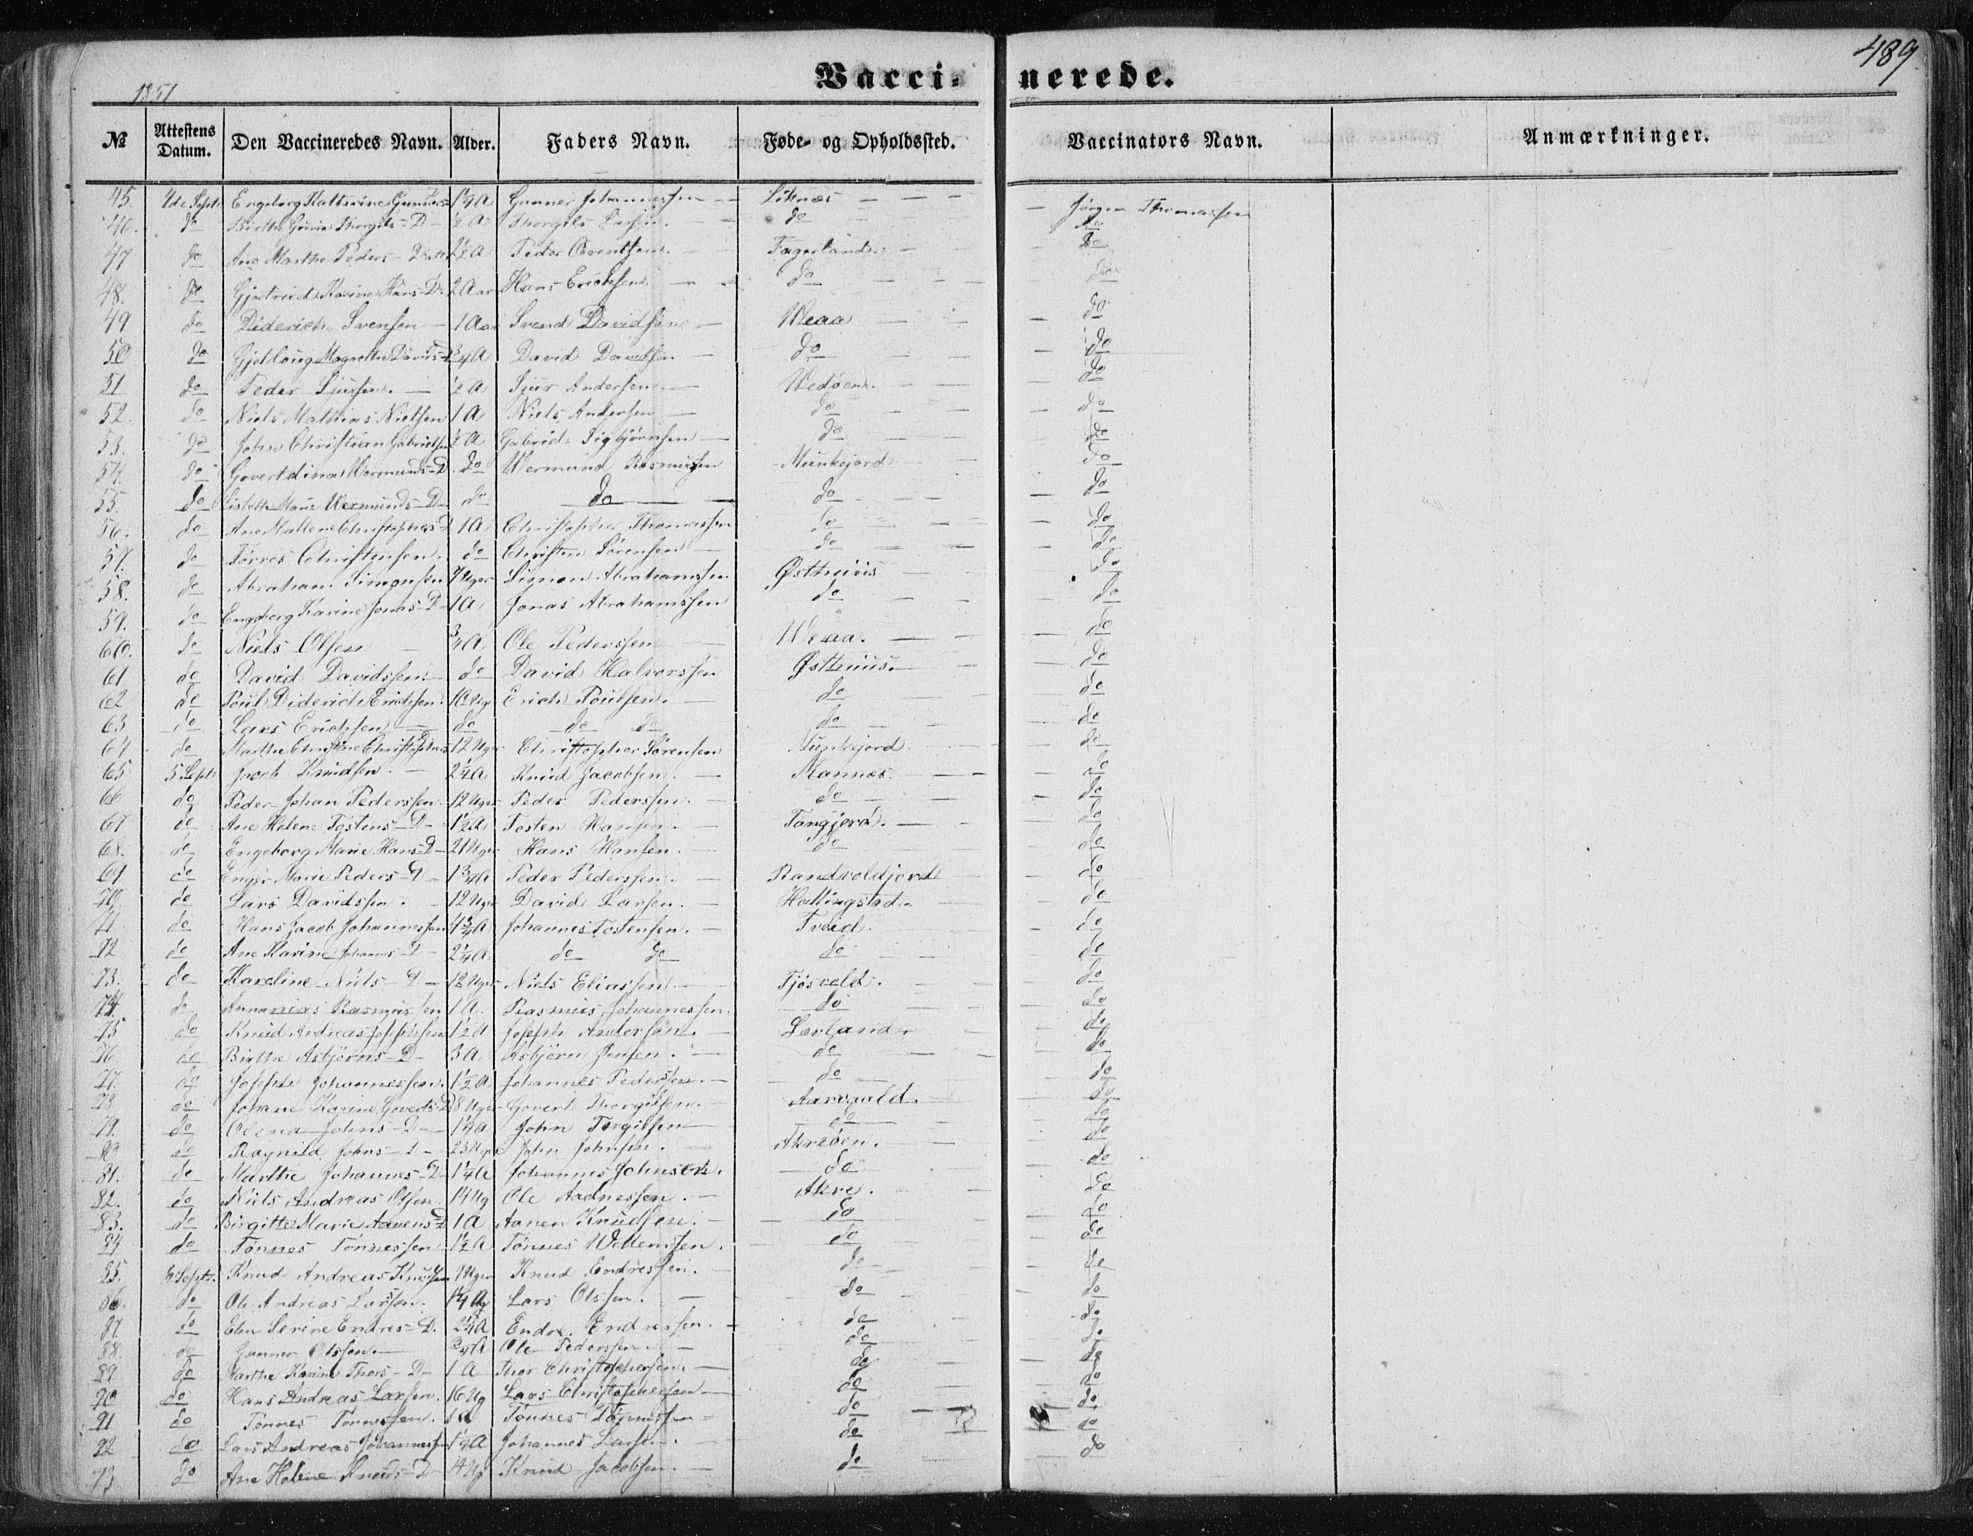 489
Vaccinerede.
1851
№ Attestens Datum. Den Vaccineredes Navn. Alder. Faders Navn. Føde- og Opholdssted. Vaccinators Navn. Anmærkninger.
45. 4de Sept Engeborg Kathrine Gunners D 1¼ A Gunner Johannessen Liknæs Jørgen Thomassen
46. do Thorgils-D ½ A Thorgils Larsen do do
47 do Ane Marthe Peders-Datt 2½ A Peder Fagerland. do
48. do Gjertrud Karine Hans-D. 2 Aar Hans Erichsen do do
49 do Diderich Svensen 1 Aar Svend Davidsen Weaa do
50 do Magrethe Davids-D ¾ A David Davidsen do do
51 do Peder Sjursen. ½ A Sjur Andersen Wedøen. do
52. do Niels Mathias Nielsen 1 A Niels Andersen do do
53. do John Christian Gabrielsen ½ A Gabriel Sigbjørnsen do do
54. do Govertdina Wermunds-D. do Wermund Rasmussen Munkejord do
55. do Wermunds-D do do do do
56. do Ane Mallene Christophers D 1 A Christopher Thomassen do do
57. do Tørres Christensen. do Christen Sørensen do do
58. do Abraham Simonsen Uger Simon Abrahamssen Østhuus do
59. do Engeborg Karine Jonas-D 1 A Jonas Abrahamssen do do
60. do Niels Olsen ¾ A Ole Pederssen Weaa. do
61 do David Davidssen do David Halvorssen Østhuus. do
62 do Poul Diderich Erichsen. 10 Ug Erich Poulsen. do do
63 do Lars Erichsen do do do do do
64 do Marthe Christine Christophers D 12 Uger Christopher Sørensen Munkejord. do
65 5 Sept Jacob Knudsen. 2¼ A Knud Jacobsen. Mannes. do
66 do Peder Johan Pederssen 12 Uger Peder Pederssen. do do
67 do Ane Helene Tostens-D 1½ A Tosten Hansen. Tangjerd. do
68. do Engeborg Marie Hans-D 21 Uger Hans Hansen. do do
69 do Marie Peders-D 1¾ A Peder Pederssen. do
70. do Lars Davidssen. 12 Uger David Larsen. Hallingstad. do
71 do Hans Jacob Johannessen 4¾ A Johannes Tostensen. do
72 do Ane Karine Johannes-D 2¼ A do do do do
73. do Karoline Niels-D 12 Uger Niels Eliassen Tjøsvold. do
74 do Annanias Rasmussen 1 A. Rasmus Johannessen. do do
75 do Knud Andreas Josephsen 1½ A Joseph Andersen. do
76. do Birthe Asbjørns-D 3 A Asbjørn Jensen. do do
77. do Joseph Johannessen. 1½ A Johannes Pederssen. do do
78. do Johane Karine Goverts D 8 Uger Govert Thorgilsen. Aarevald. do
79. do Olena Johns-D 1¼ A John Torgilsen do do
80 do Ragnild Johns-D 23 Uger John Johnsen. Akreøen. do
81. do Marthe Johannes-D 1¼ A Johannes Johnsen. do do
82. do Niels Andreas Olsen. 14 Ug Ole Aadnessen. Akre. do
83. do Birgitte Marie Aanens D 1 A Aanen Knudsen. do do
84 do Tønnes Tønnessen 1½ A Tønnes Willemsen. do do
85. 6 Sept. Knud Andreas Knudsen Uger Knud Endressen. do do
86. do Ole Andreas Larssen. Lars Olssen. do do
87 do Elen Serine Endres-D. 2¼ A Endre Endressen. do do
88. do Gunner Olssen. ¾ A Ole Pederssen. do do
89 do Marthe Karine Thors-D 1 A Thor Christophersen. do do
90 do Hans Andreas Larsen. 16 Ug Lars Christophersen do do
91 do Tønnes Tønnessen. 1 A Tønnes Tønnessen do do
92 do Lars Andreas Johannessen 1¼ A Johannes Larsen. do do
93 do Ane Helene Knuds-D 14 Ug Knud Jacobsen. do do